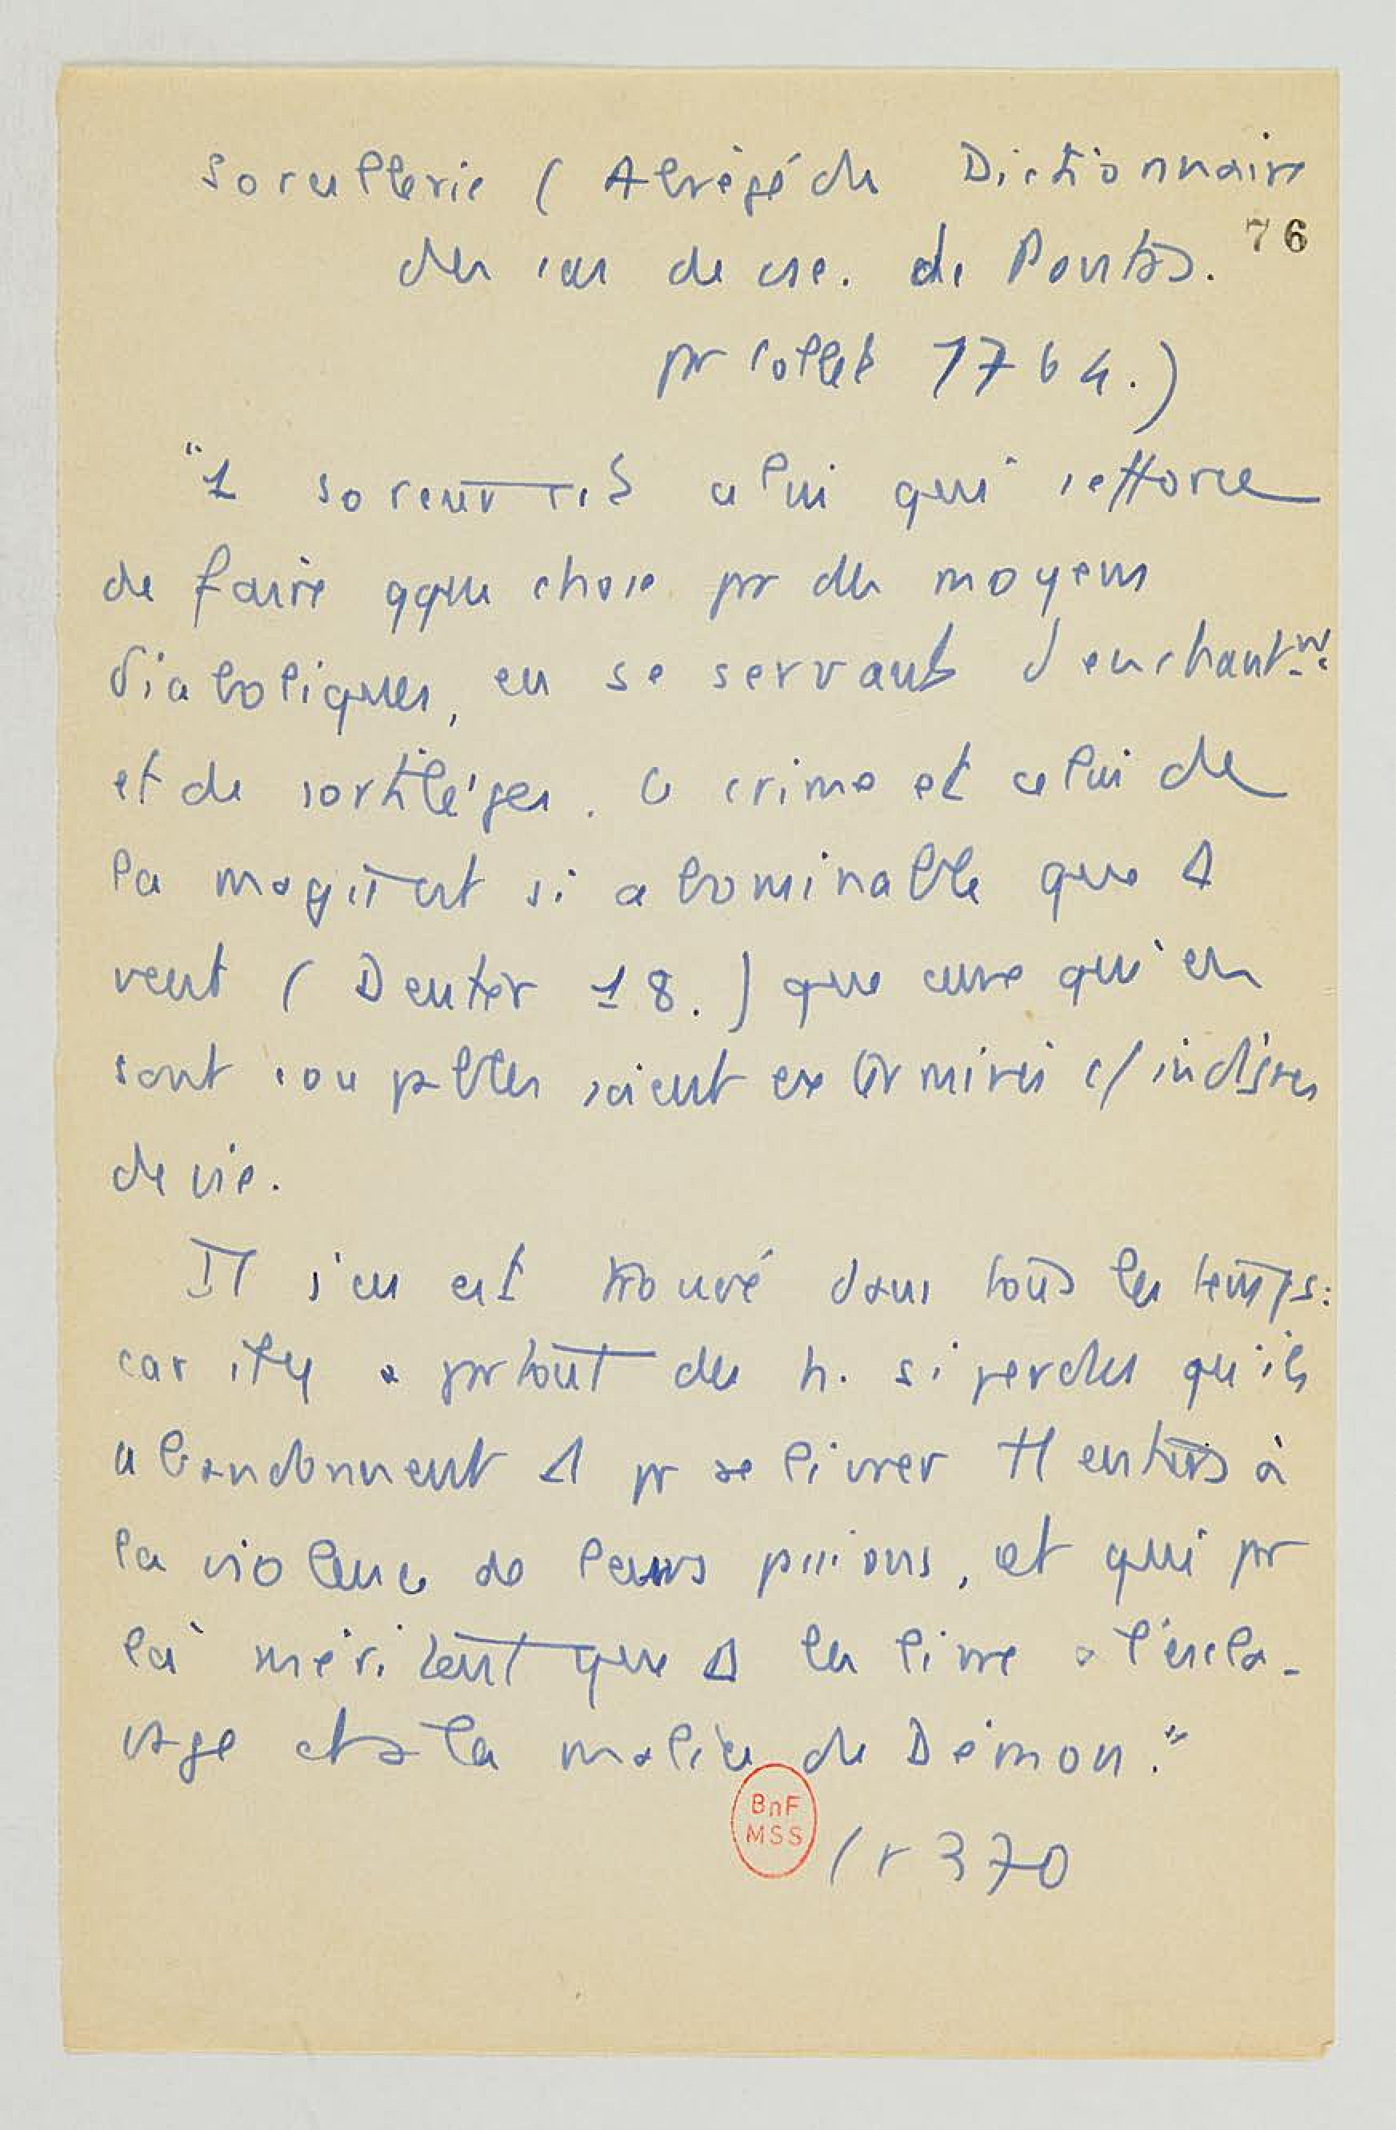 Sorcellerie ( Abrégé du Dictionnaire
76
des cas de csc. de Pontas.
pr Collet 1764.)
"1 sorcier est celui qui s'efforce
de faire qque chose pr des moyens
diaboliques, en se servant d'enchantm.
et de sortilèges. Ce crime et celui de
la magie est si abominable que Δ
veut ( Deuter 18. ) que ceux qui en
sont coupables soient exterminés c/ indignes
de vie.
Il s'en est trouvé dans tous les temps:
car il y a partout des h. si perdus qu'ils
abandonnent Δ pr se livrer tt entiers à
la violence de leurs passions, et qui pr
là méritent que Δ les livre à l'escla-
vage et à la malice du Démon."
BnF
MSS
( r 370